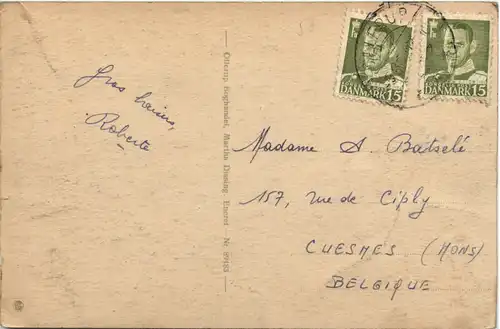 Gros baisers,
Roberte
Otterup Boghandel, Martha Dinsing. Eneret - Nr
DANMARK 15
DANMARK 15
Madame A. Batselé
157, rue de Ciply
CUESMES (MONS)
BELGIQUE